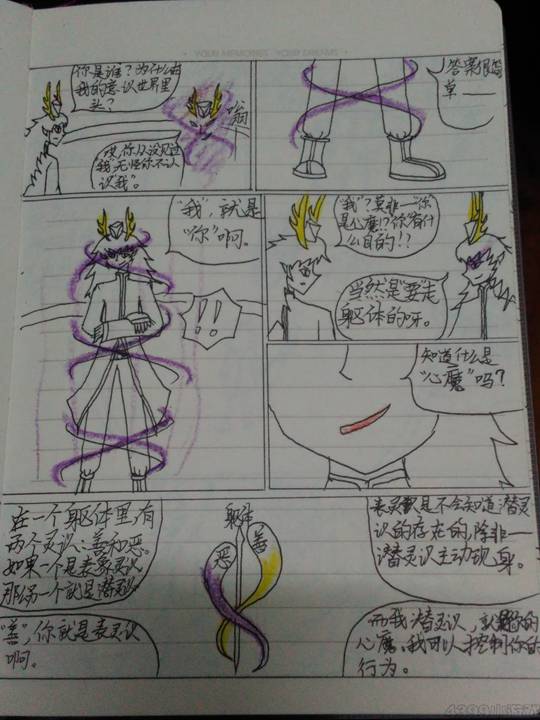 你是谁？为什么在
我的意识世界里
头？
哎，你从没见过
我，无怪你不认
识我”。
答案很简
单——
“我”，就是
“你”啊。
！！
“我”？莫非——你
是心魔！？你有什
么目的！？
当然是“要”走
躯体的呀。
知道什么是
“心魔”吗？
在一个躯体里，有
两个灵识：善和恶。
如果一个是表灵识
那么另一个就是潜灵识
“善”，你就是表灵识
啊。
躯体
恶
善
表灵识是不会知道潜灵
识的存在的，除非——
潜灵识主动现
身。
而我潜灵识，就是你的
心魔，我可以控制你的
行为。